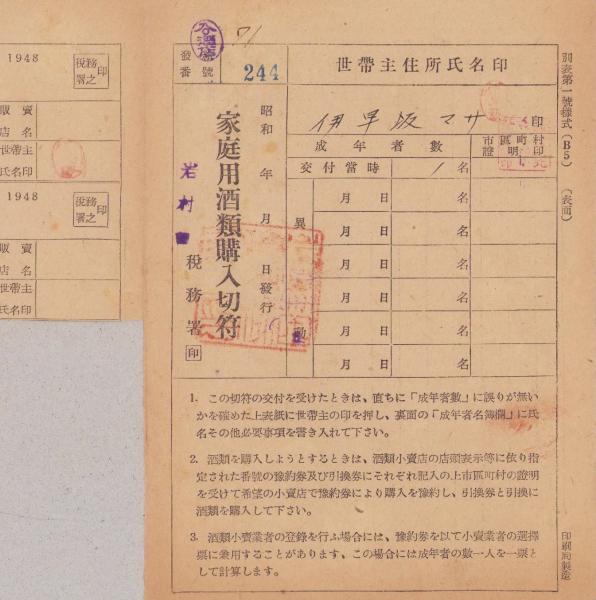 1948
税務署之印
販賣
店名
世帶主
氏名印
1948
税務署之印
販賣
店名
世帶主
氏名印
71
發號
番號
244
世帶主住所氏名印
伊早坂マサ 印
成年者數
市區町村證明印
交付當時 1 名
異動
月 日 名
月 日 名
月 日 名
月 日 名
月 日 名
月 日 名
昭和 年 月 日發行
家庭用酒類購入切符
岩村
税務署印
1. この切符の交付を受けたときは、直ちに「成年者數」に誤りが無い
かを確めた上表紙に世帶主の印を押し、裏面の「成年者名簿欄」に氏
名その他必要事項を書き入れて下さい。
2. 酒類を購入しようとするときは、酒類小賣店の店頭表示等に依り指
定された番號の豫約券及び引換券にそれぞれ記入の上市區町村の證明
を受けて希望の小賣店で豫約券により購入を豫約し、引換券と引換に
酒類を購入して下さい。
3. 酒類小賣業者の登錄を行ふ場合には、豫約券を以て小賣業者の選擇
票に兼用することがあります、この場合には成年者の數一人を一票と
して計算します。
別表第一號樣式(B5)
(表面)
印刷局製造